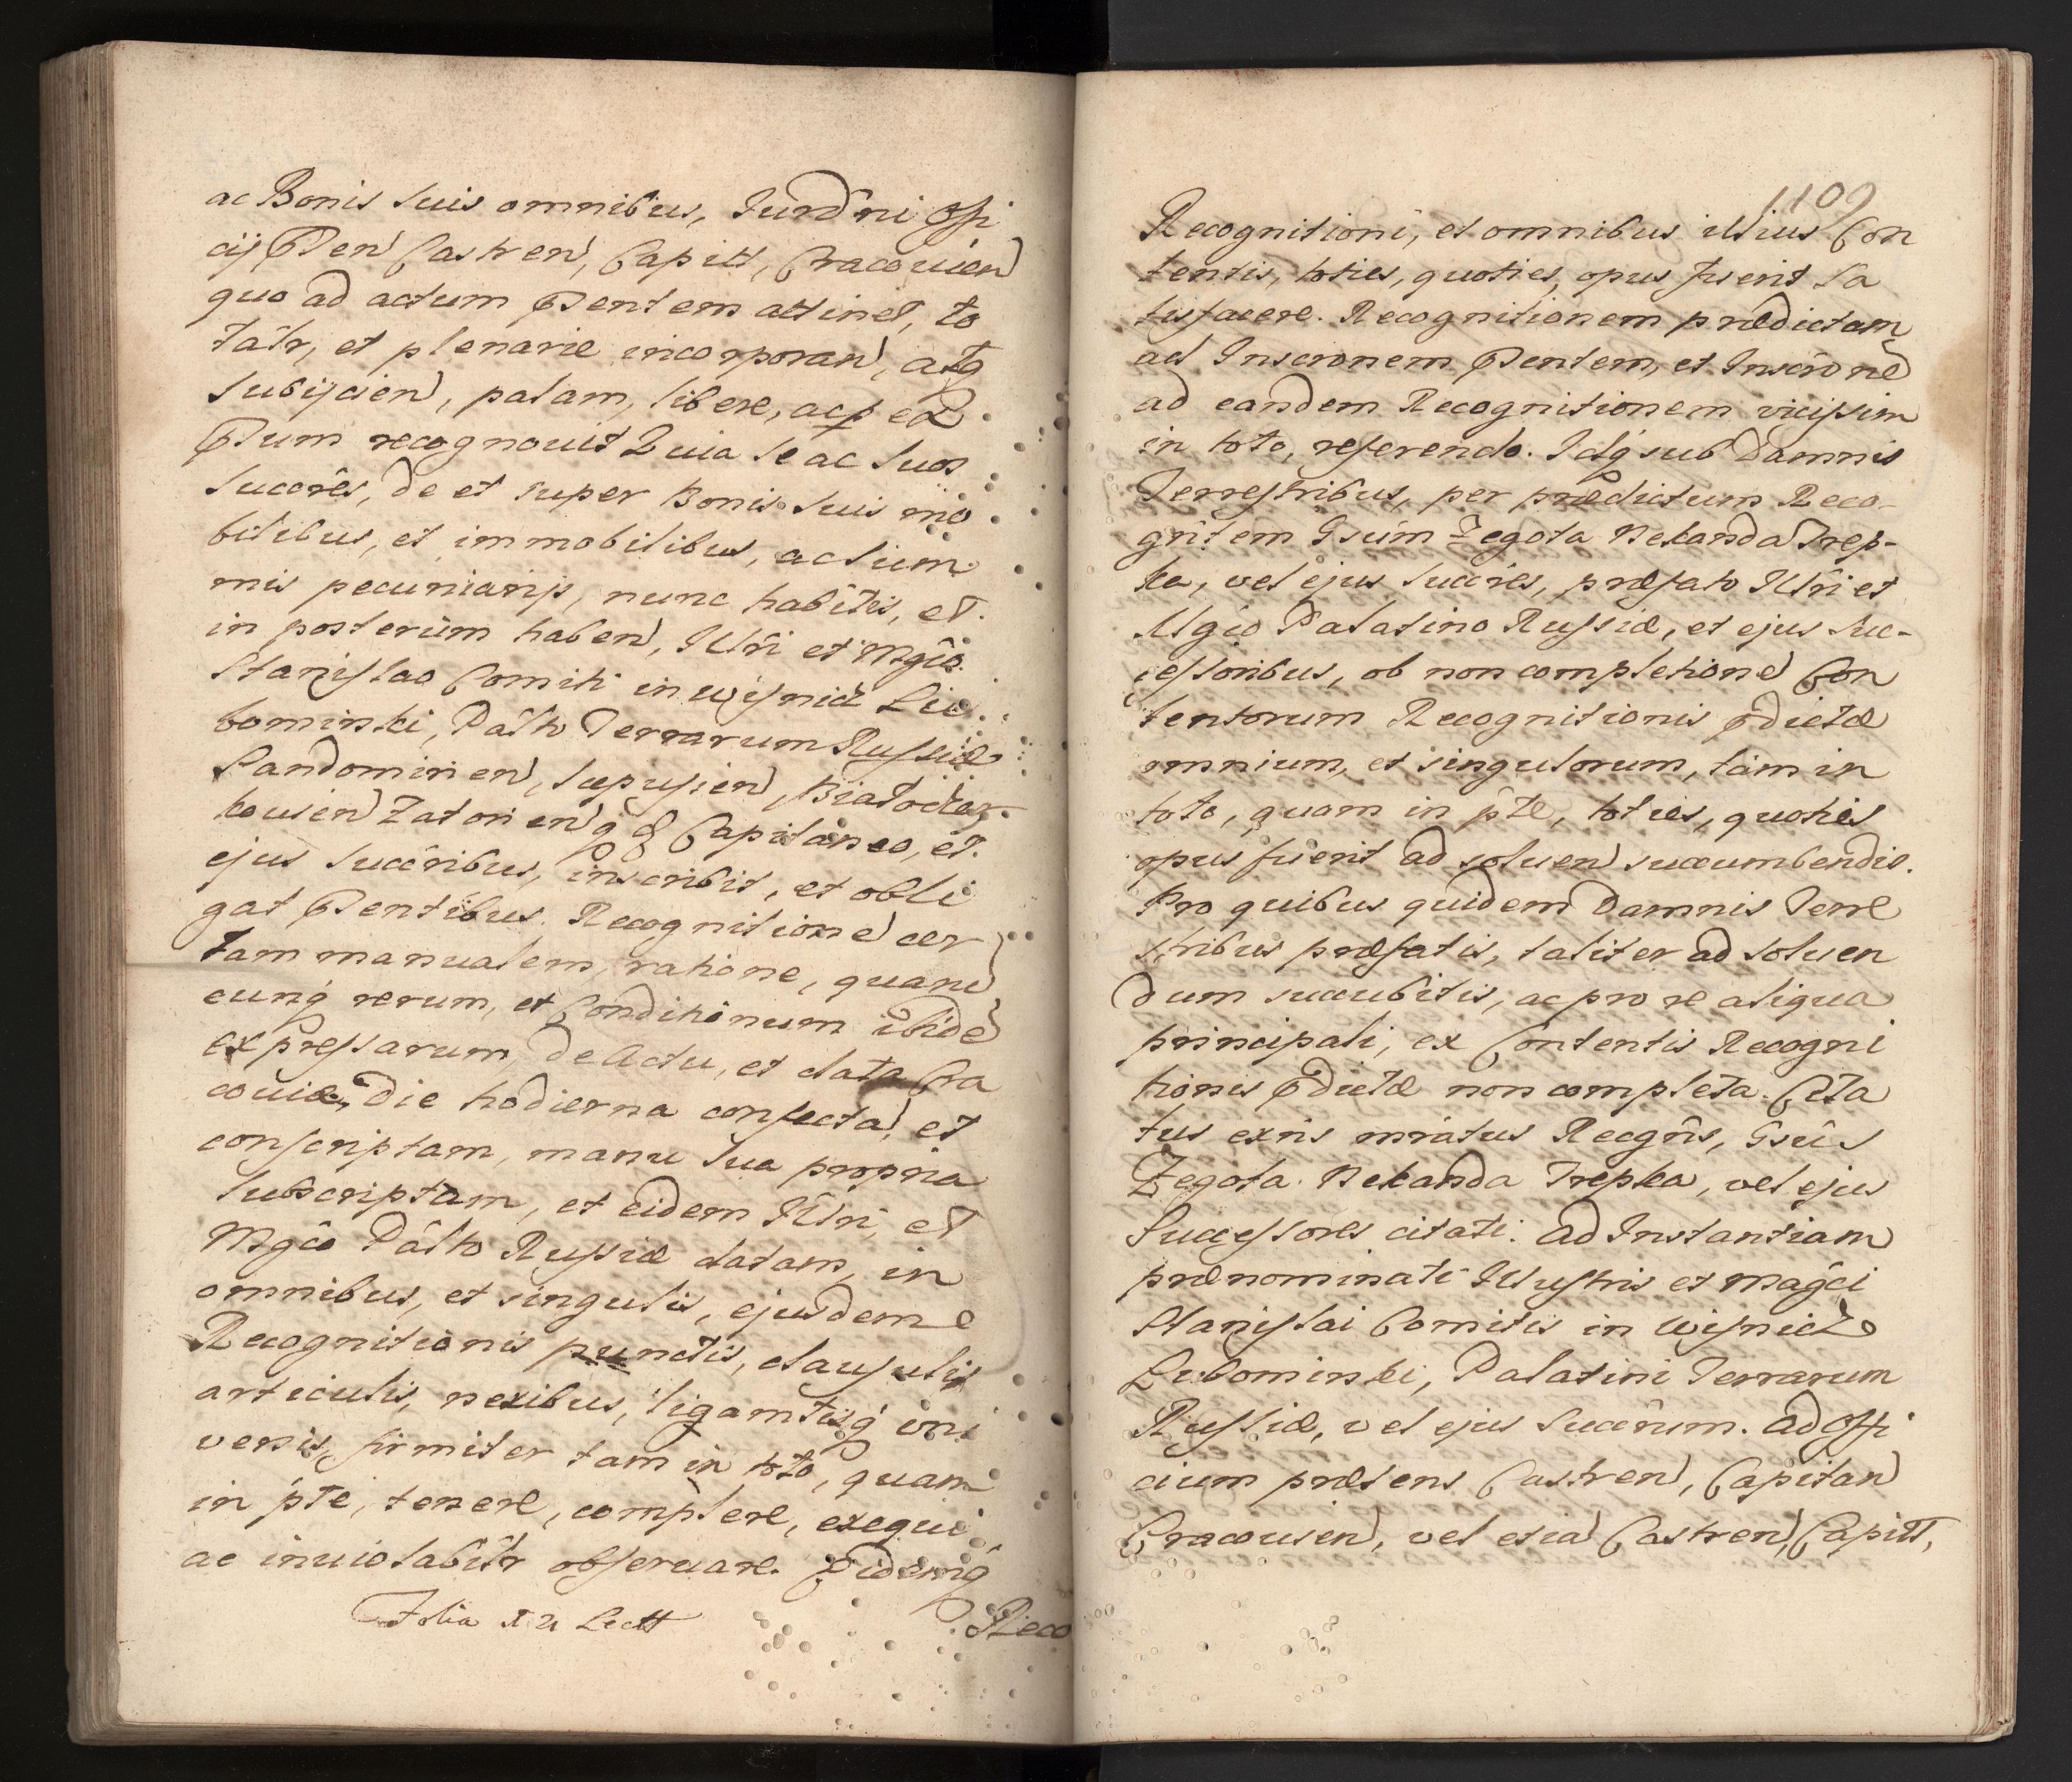 ac Bonis suis omnibus, Jurd̄ni Offi
cij Pn̄ten Castren, Capitt, Cracouien
quo ad actum Pn̄tem attinet, to
talr, et plenarie incorporan, atq
subijcien, palam, libere, ac p ex
Psum recognouit Quia se ac suos
succ̄res, de et super Bonis suis mo
bilibus, et immobilibus, ac sum
mis pecuniarijs, nunc habitis, et
in posterum haben, Illri et Mgco
Stanislao Comiti in Wisnicz Lu
bomirski, Palto Terrarum Russiæ
Sandomirien, Scepusien, Biało
kouien Zatorienq & Capitaneo, et
ejus succ̄ribus, inscribit, et obli
gat Pn̄tibus. Recognitione cer
tam manualem, ratione, quaru
cunq rerum, et Conditionum ibide
expressarum, de Actu, et data Cra
couiæ, die hodierna confecta, et
conscriptam, manu sua propria
subscriptam, et eidem Illri, et
Mgco Palto Russiæ datam, in
omnibus, et singulis, ejusdem
Recognitionis punctis, clausulis
articulis, nexibus, ligamtisq uni
versis, firmiter tam in toto, quam
in pte, tenere, complere, exequi
ac inuiolabilr obseruare. Eidemq
Folia Lectt
Reco
1109
Recognitioni, et omnibus illius Con
tentis, toties, quoties, opus fuerit Sa
tisfacere. Recognitionem prædictam
ad Inscr̄onem Pn̄tem, et Inscr̄one
ad eandem Recognitionem vicissim
in toto, referendo. Idq sub Damnis
Terrestribus, per prædictum Reco-
gntem Gsum Zegota Nekanda Trep-
ka, vel ejus succ̄res, præfato Illri et
Mgco Palatino Russiæ, et ejus Suc-
cessoribus, ob non completione Con
tentorum Recognitionis pdictæ
omnium, et singulorum, tam in
toto, quam in pte, toties, quoties
opus fuerit ad soluen succumbendis.
Pro quibus quidem Damnis Terre
stribus præfatis, taliter ad soluen
dum succubitis, ac pro re aliqua
principali, ex Contentis Recogni
tionis pdictæ non completa. Cita
tus exn̄s mratus Recgns, Gsus
Zegota Nekanda Trepka, vel ejus
Successores citati. Ad Instantiam
prænominati Illustris et Magci
Stanislai Comitis in Wisnicz
Lubomirski, Palatini Terrarum
Russiæ, vel ejus Succ̄rum. Ad Offi
cium præsens Castren, Capitan
Cracouien, vel etia Castren, Capitt,